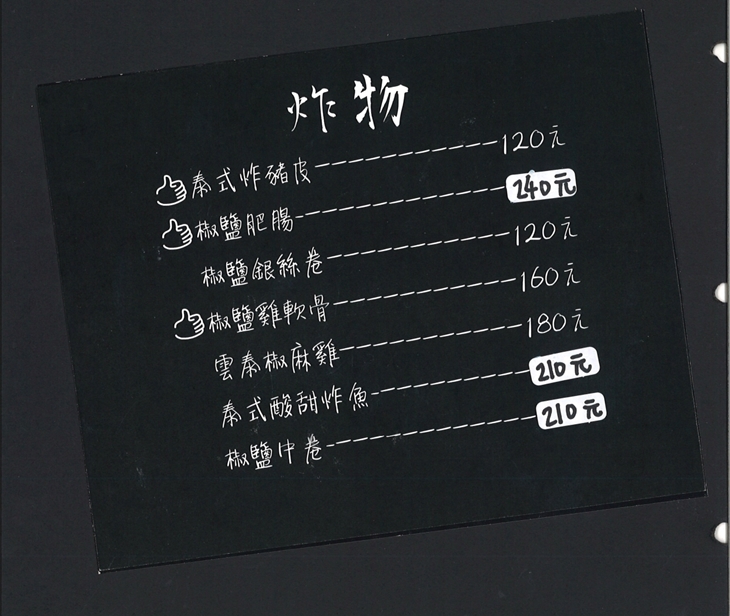 炸物
泰式炸豬皮-----------120元
椒鹽肥腸-------------240元
椒鹽銀絲卷-----------120元
椒鹽雞軟骨-----------160元
雲泰椒麻雞-----------180元
泰式酸甜炸魚---------210元
椒鹽中卷-------------210元